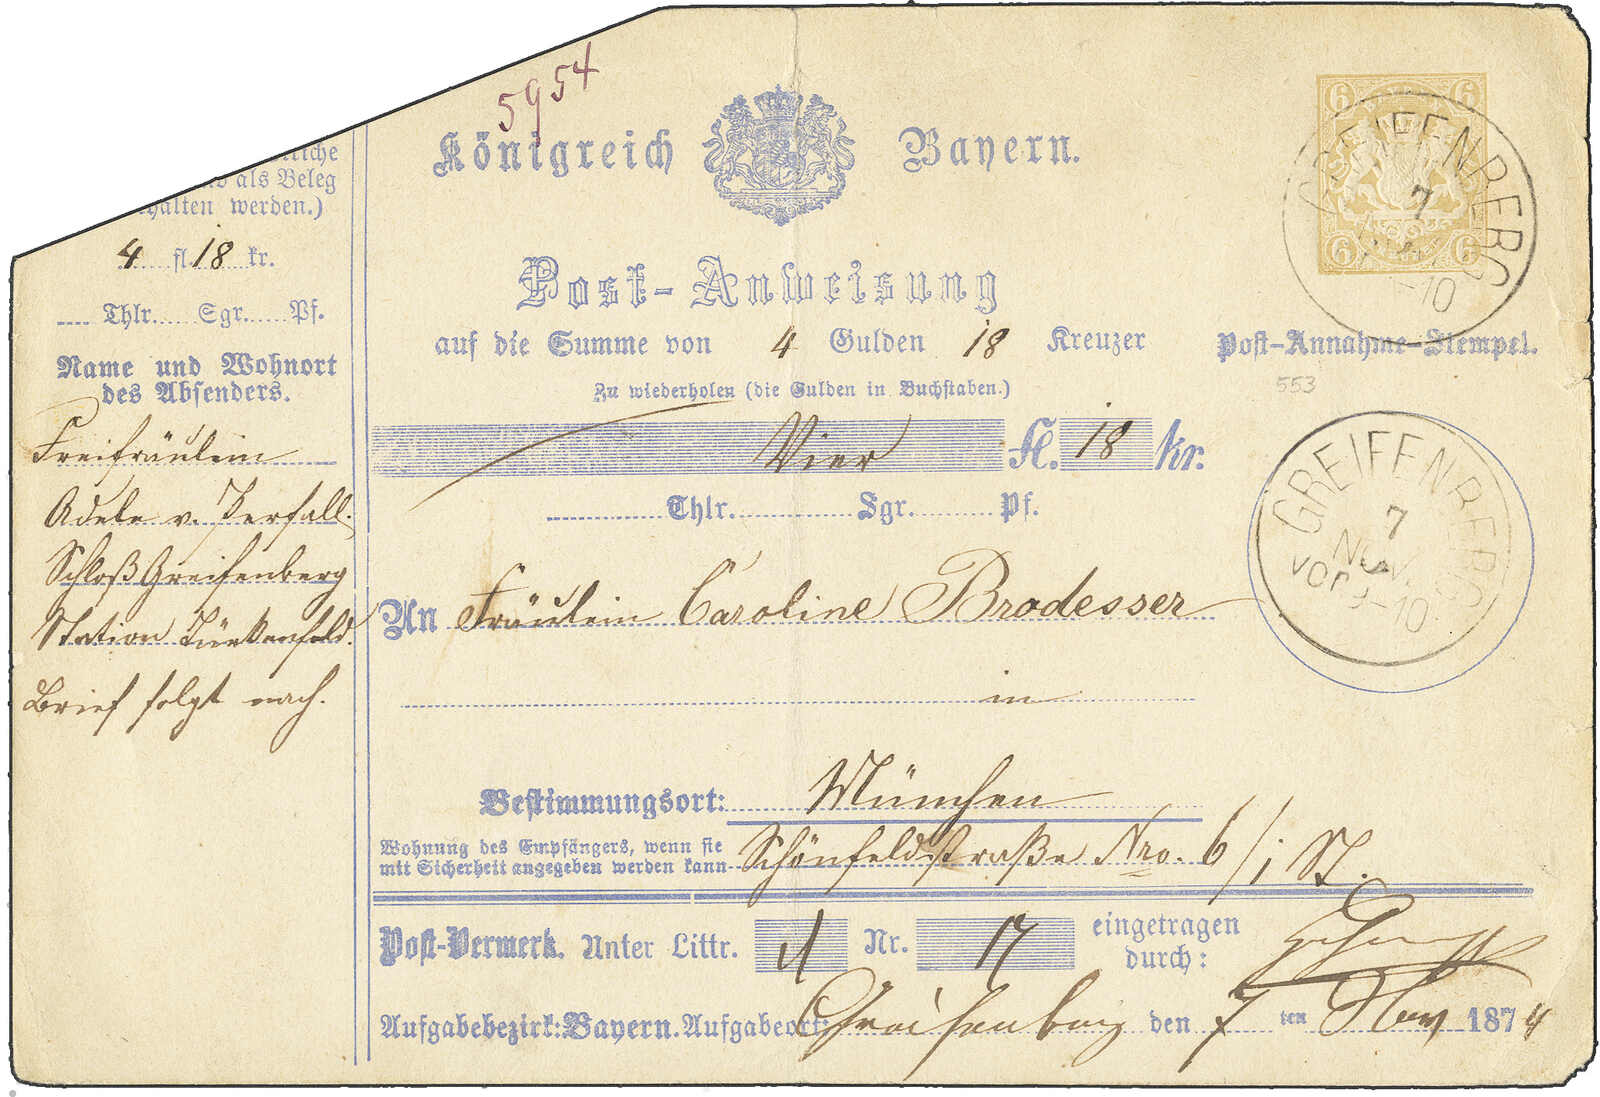 5954
Königreich Bayern.
6 6
6 6
GREIFENBERG
7
-10
Post-Anweisung
auf die Summe von 4 Gulden 18 Kreuzer
Post-Annahme-Stempel.
553
Zu wiederholen (die Gulden in Buchstaben.)
Vier fl. 18 kr.
Thlr. Sgr. Pf.
GREIFENBERG
7
NOV.
VOR 9-10
An Fräulein Caroline Brodesser
in
Bestimmungsort: München
Wohnung des Empfängers, wenn sie
mit Sicherheit angegeben werden kann
Schönfeldstraße Nro. 6/1 St.
Post-Vermerk. Unter Littr. A Nr. 17 eingetragen
durch:
Aufgabebezirk: Bayern. Aufgabeort: Greifenberg den 7 ten Nov 1874
als Beleg
werden.)
4 fl 18 kr.
Thlr. Sgr. Pf.
Name und Wohnort
des Absenders.
Freifräulein
Adele v. Perfall.
Schloß Greifenberg
Station Türkenfeld.
Brief folgt nach.